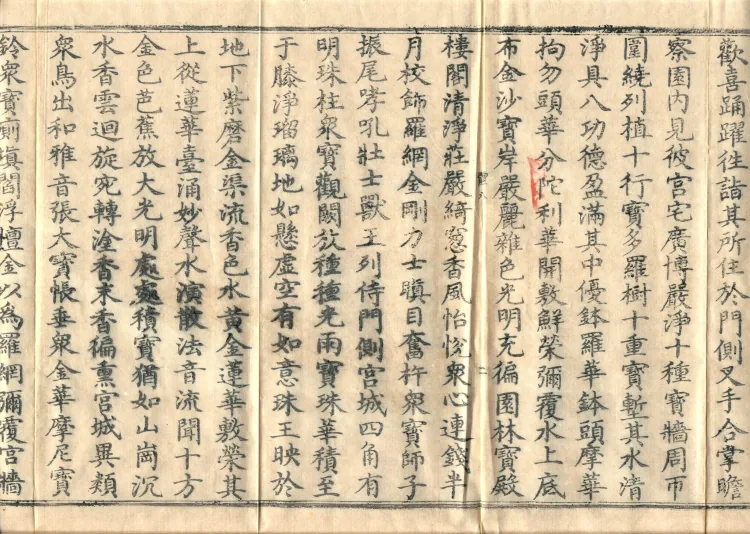 歡喜踊躍徃詣其所住於門側叉手合掌瞻
察園内見彼宮宅廣博嚴淨十種寶牆周帀
圍繞列植十行寶多羅樹十重寶塹其水清
淨具八功德盈滿其中優鉢羅華鉢頭摩華
拘勿頭華分陀利華開敷鮮榮彌覆水上底
布金沙寶岸嚴麗雜色光明充徧園林寶殿
樓閣清淨莊嚴綺窓香風怡悅衆心連錢半
月校飾羅網金剛力士瞋目奮杵衆寶師子
振尾哮吼壯士獸王列侍門側宮城四角有
明珠柱衆寶觀闕放種種光雨寶珠華積至
于膝淨瑠璃地如懸虛空有如意珠王映於
地下紫磨金渠流香色水黃金蓮華敷榮其
上從蓮華臺涌妙聲水演散法音流聞十方
金色芭蕉放大光明處處積寶猶如山崗沉
水香雲迴旋宛轉塗香末香徧熏宮城異類
衆鳥出和雅音張大寶帳垂衆金華摩尼寶
鈴衆寶廁塡閻浮檀金以為羅網彌覆宮牆